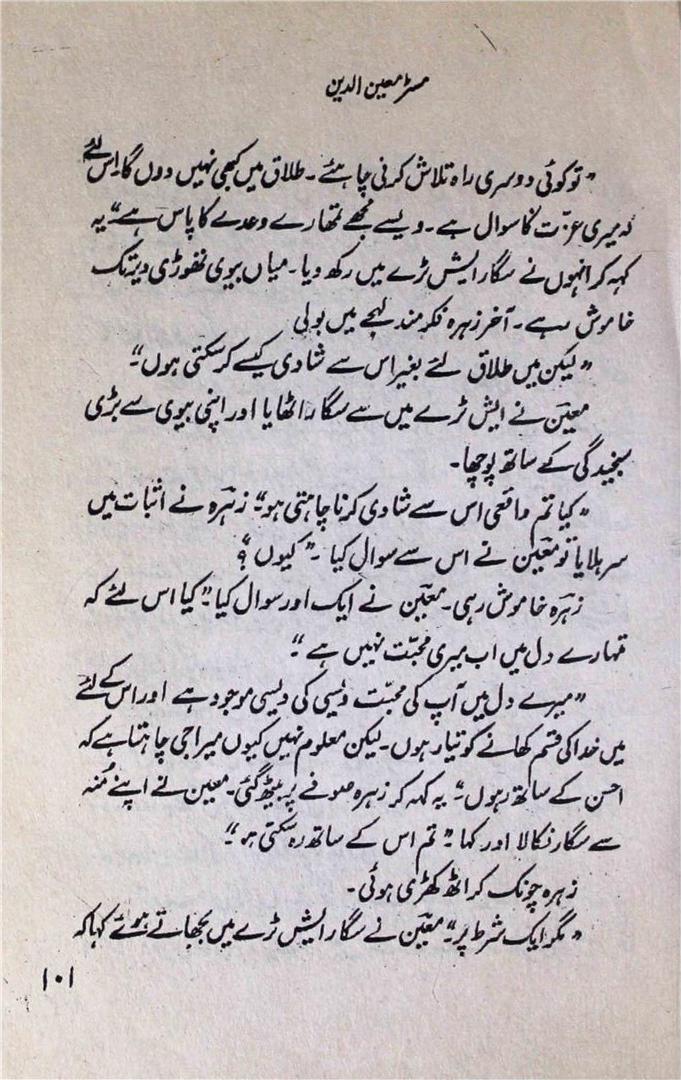 مسٹر معین الدین
"تو کوئی دوسری راہ تلاش کرنی چاہئے۔ طلاق میں کبھی نہیں دوں گا۔ اس لئے
کہ میری عزّت کا سوال ہے۔ ویسے مجھے تمھارے وعدے کا پاس ہے" یہ
کہہ کر انہوں نے سگار ایش ٹرے میں رکھ دیا۔ میاں بیوی تھوڑی دیر تک
خاموش رہے۔ آخر زہرہ فکرمند لہجے میں بولی
"لیکن میں طلاق لئے بغیر اس سے شادی کیسے کر سکتی ہوں"
معین نے ایش ٹرے میں سے سگار اٹھایا اور اپنی بیوی سے بڑی
سنجیدگی کے ساتھ پوچھا۔
"کیا تم واقعی اس سے شادی کرنا چاہتی ہو" زہرہ نے اثبات میں
سر ہلایا تو معین نے اس سے سوال کیا۔ "کیوں؟"
زہرہ خاموش رہی۔ معین نے ایک اور سوال کیا "کیا اس لئے کہ
تمہارے دل میں اب میری محبّت نہیں ہے"
"میرے دل میں آپ کی محبّت ویسی کی ویسی موجود ہے اور اس کے لئے
میں خدا کی قسم کھانے کو تیار ہوں۔ لیکن معلوم نہیں کیوں میرا جی چاہتا ہے کہ
احسن کے ساتھ رہوں" یہ کہہ کر زہرہ صوفے پر بیٹھ گئی۔ معین نے اپنے مُنہ
سے سگار نکالا اور کہا "تم اس کے ساتھ رہ سکتی ہو"
زہرہ چونک کر اٹھ کھڑی ہوئی۔
"مگر ایک شرط پر" معین نے سگار ایش ٹرے میں بجھاتے ہوئے کہا کہ
۱۰۱